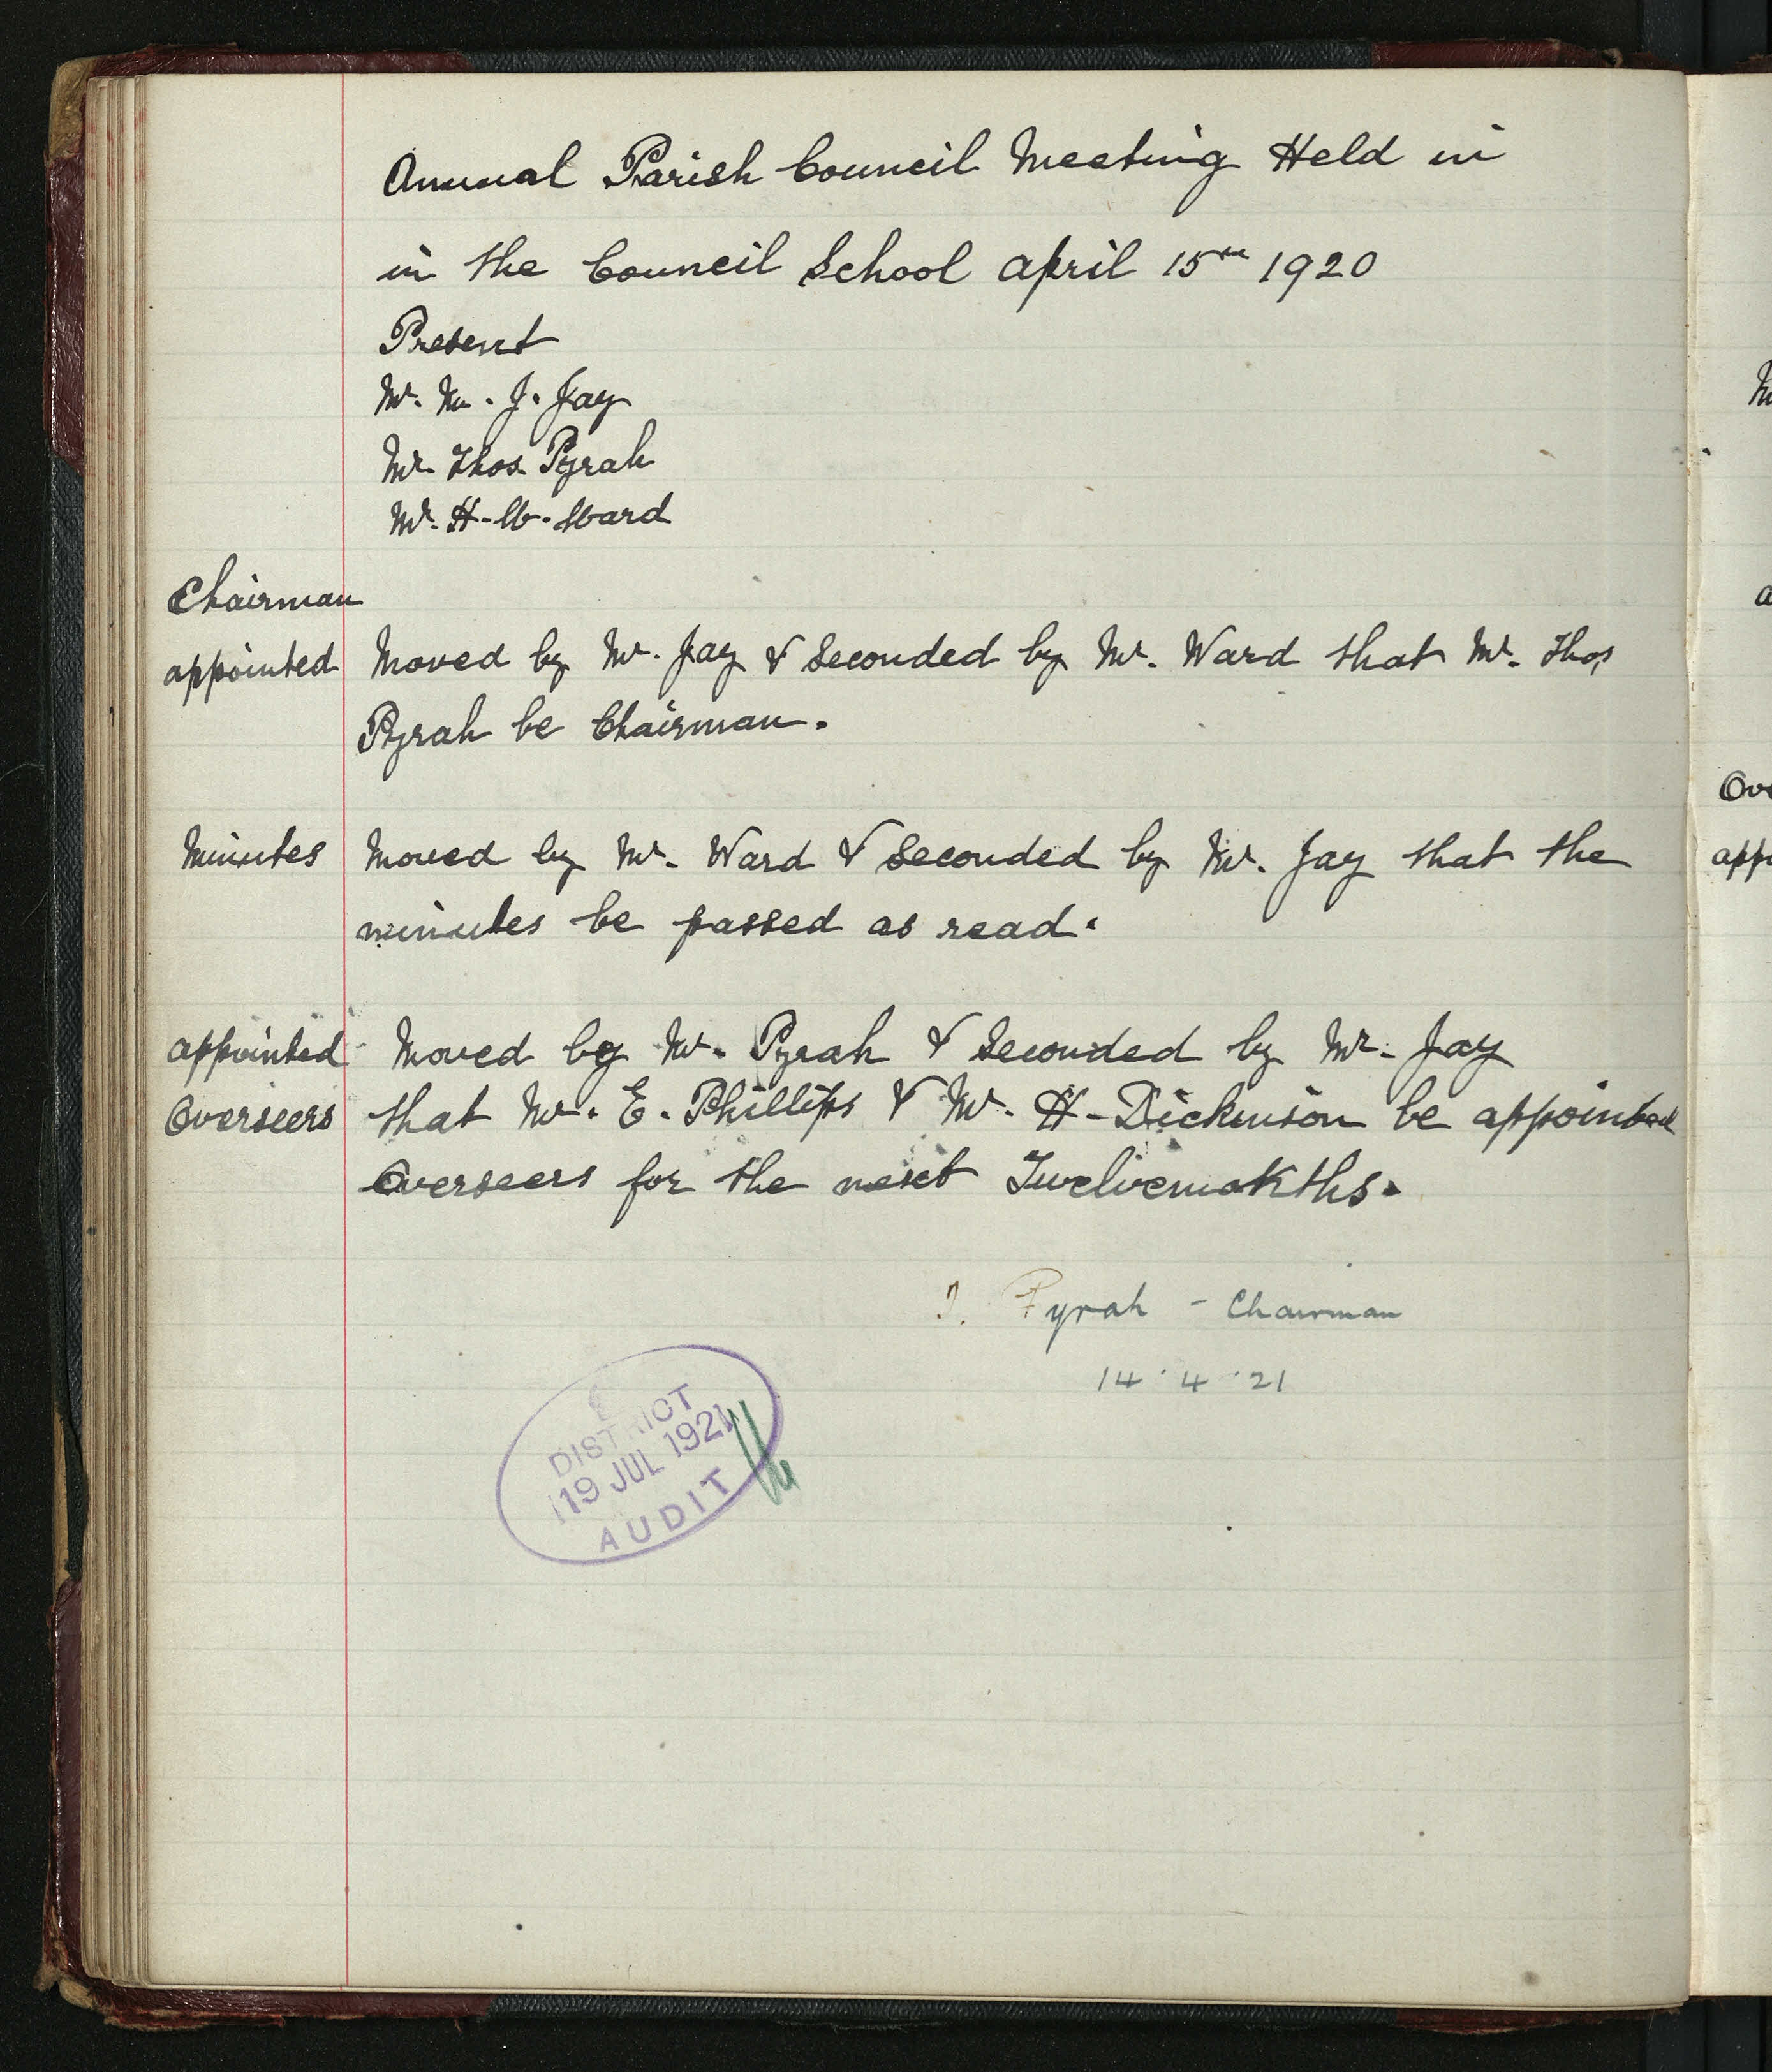 Annual Parish Council Meeting Held in
in the Council School April 15th 1920
Present
Mr. Wm. J. Jay
Mr. Thos. Pyrah
Mr. H. W. Ward
Chairman
appointed Moved by Mr. Jay & Seconded by Mr. Ward that Mr. Thos
Pyrah be Chairman.
Minutes Moved by Mr. Ward & Seconded by Mr. Jay that the
minutes be passed as read.
appointed Moved by Mr. Pyrah & Seconded by Mr. Jay
Overseers that Mr. E. Phillips & Mr. H. Dickinson be appointed
Overseers for the next Twelvemonths.
T. Pyrah - Chairman
14.4.21
DISTRICT
19 JUL 1921
AUDIT